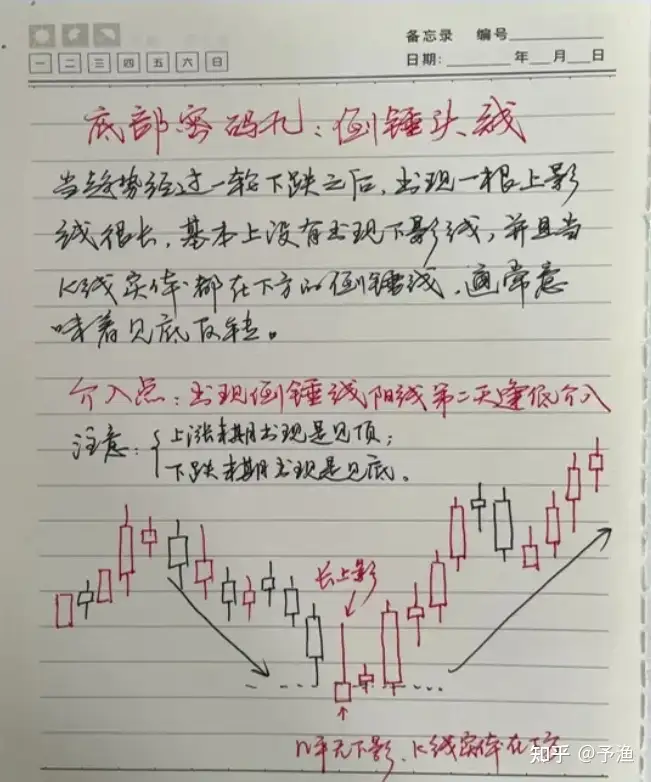 备忘录 编号
一 二 三 四 五 六 日 日期: 年 月 日
底部密码九：倒锤头线
当趋势经过一轮下跌之后，出现一根上影
线很长，基本上没有出现下影线，并且当
K线实体都在下方的倒锤线，通常意
味着见底反转。
介入点：出现倒锤线阳线第二天逢低介入
注意：{上涨末期出现是见顶；
下跌末期出现是见底。
长上影
几乎无下影、K线实体在下方
知乎 @予渔